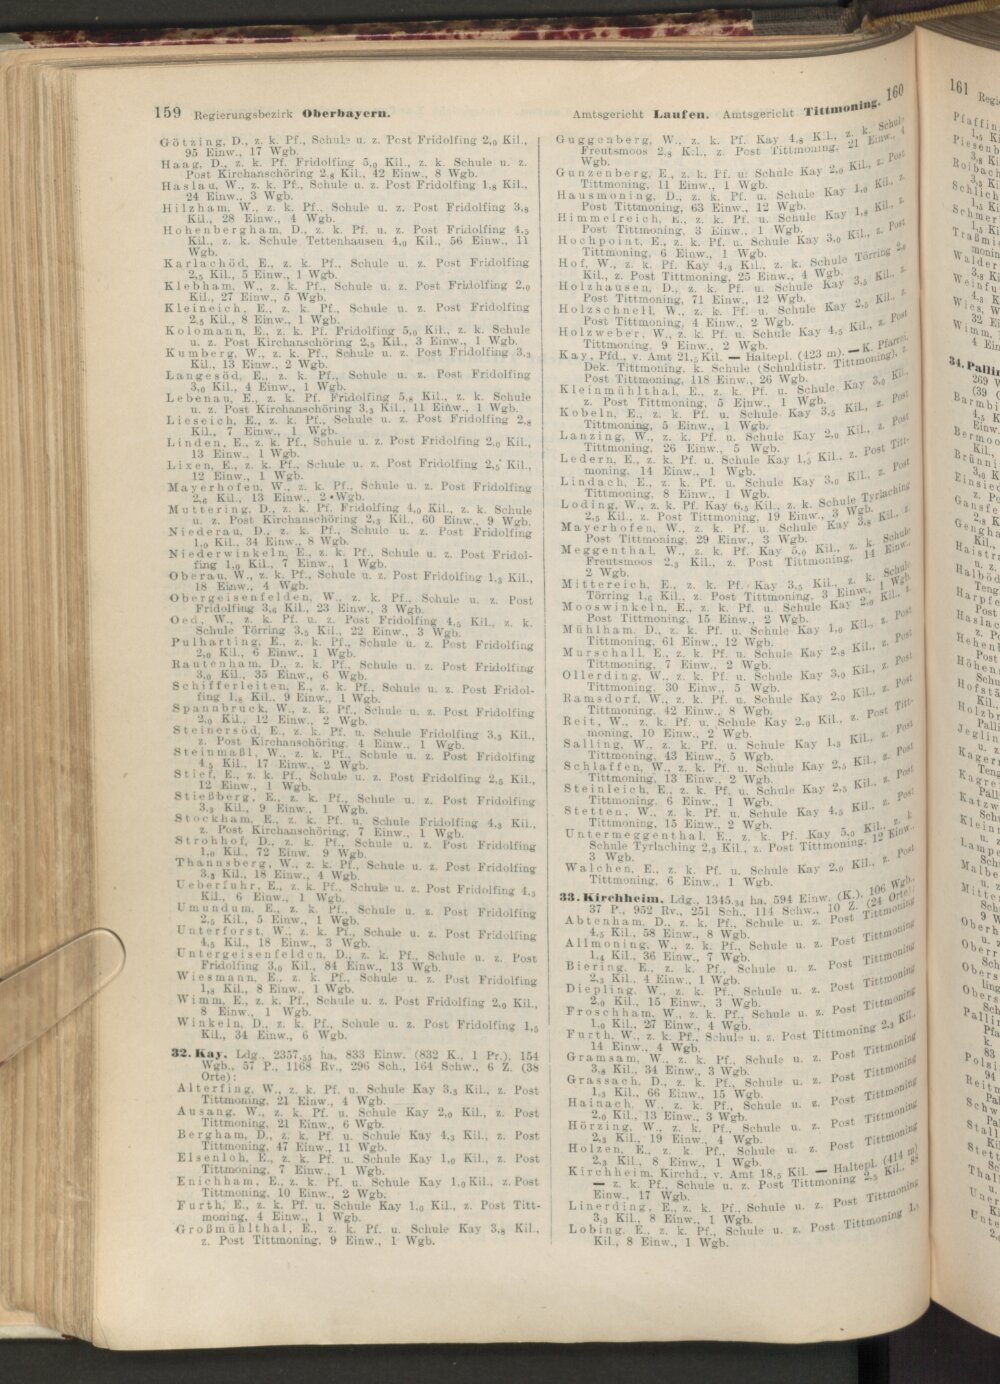 159 Regierungsbezirk Oberbayern.
Götzing, D., z. k. Pf., Schule u. z. Post Fridolfing 2,0 Kil.,
95 Einw., 17 Wgb.
Haag, D., z. k. Pf. Fridolfing 5,0 Kil., z. k. Schule u. z.
Post Kirchanschöring 2,8 Kil., 42 Einw., 8 Wgb.
Haslau, W., z. k. Pf., Schule u. z. Post Fridolfing 1,8 Kil.,
24 Einw., 3 Wgb.
Hilzham, W., z. k. Pf., Schule u. z. Post Fridolfing 3,8
Kil., 28 Einw., 4 Wgb.
Hohenbergham, D., z. k. Pf. u. z. Post Fridolfing 4,5
Kil., z. k. Schule Tettenhausen 4,0 Kil., 56 Einw., 11
Wgb.
Karlachöd, E., z. k. Pf., Schule u. z. Post Fridolfing
2,5 Kil., 5 Einw., 1 Wgb.
Klebham, W., z. k. Pf., Schule u. z. Post Fridolfing 2,0
Kil., 27 Einw., 5 Wgb.
Kleineich, E., z. k. Pf., Schule u. z. Post Fridolfing
2,5 Kil., 8 Einw., 1 Wgb.
Kolomann, E., z. k. Pf. Fridolfing 5,0 Kil., z. k. Schule
u. z. Post Kirchanschöring 2,5 Kil., 3 Einw., 1 Wgb.
Kumberg, W., z. k. Pf., Schule u. z. Post Fridolfing 3,3
Kil., 13 Einw., 2 Wgb.
Langesöd, E., z. k. Pf., Schule u. z. Post Fridolfing
3,0 Kil., 4 Einw., 1 Wgb.
Lebenau, E., z. k. Pf. Fridolfing 5,8 Kil., z. k. Schule
u. z. Post Kirchanschöring 3,3 Kil., 11 Einw., 1 Wgb.
Lieseich, E., z. k. Pf., Schule u. z. Post Fridolfing 2,8
Kil., 7 Einw., 1 Wgb.
Linden, E., z. k. Pf., Schule u. z. Post Fridolfing 2,0 Kil.,
13 Einw., 1 Wgb.
Lixen, E., z. k. Pf., Schule u. z. Post Fridolfing 2,5 Kil.,
12 Einw., 1 Wgb.
Mayerhofen, W., z. k. Pf., Schule u. z. Post Fridolfing
2,6 Kil., 13 Einw., 2 Wgb.
Muttering, D., z. k. Pf. Fridolfing 4,0 Kil., z. k. Schule
u. z. Post Kirchanschöring 2,3 Kil., 60 Einw., 9 Wgb.
Niederau, D., z. k. Pf., Schule u. z. Post Fridolfing
1,0 Kil., 34 Einw., 8 Wgb.
Niederwinkeln, E., z. k. Pf., Schule u. z. Post Fridol-
fing 1,0 Kil., 7 Einw., 1 Wgb.
Oberau, W., z. k. Pf., Schule u. z. Post Fridolfing 1,3 Kil.,
18 Einw., 4 Wgb.
Obergeisenfelden, W., z. k. Pf., Schule u. z. Post
Fridolfing 3,6 Kil., 23 Einw., 3 Wgb.
Oed, W., z. k. Pf. u. z. Post Fridolfing 4,5 Kil., z. k.
Schule Törring 3,5 Kil., 22 Einw., 3 Wgb.
Pulharting, E., z. k. Pf., Schule u. z. Post Fridolfing
2,0 Kil., 6 Einw., 1 Wgb.
Rautenham, D., z. k. Pf., Schule u. z. Post Fridolfing
3,0 Kil., 35 Einw., 6 Wgb.
Schifferleiten, E., z. k. Pf., Schule u. z. Post Fridol-
fing 1,8 Kil., 9 Einw., 1 Wgb.
Spannbruck, W., z. k. Pf., Schule u. z. Post Fridolfing
2,0 Kil., 12 Einw., 2 Wgb.
Steinersöd, E., z. k. Pf. u. Schule Fridolfing 3,3 Kil.,
z. Post Kirchanschöring, 4 Einw., 1 Wgb.
Steinmaßl, W., z. k. Pf., Schule u. z. Post Fridolfing
4,5 Kil., 17 Einw., 2 Wgb.
Stief, E., z. k. Pf., Schule u. z. Post Fridolfing 2,5 Kil.,
12 Einw., 1 Wgb.
Stießberg, E., z. k. Pf., Schule u. z. Post Fridolfing
3,3 Kil., 9 Einw., 1 Wgb.
Stockham, E., z. k. Pf. u. Schule Fridolfing 4,3 Kil.,
z. Post Kirchanschöring, 7 Einw., 1 Wgb.
Strohhof, D., z. k. Pf., Schule u. z. Post Fridolfing
1,0 Kil., 72 Einw. 9 Wgb.
Thannsberg, W., z. k. Pf., Schule u. z. Post Fridolfing
3,3 Kil., 18 Einw., 4 Wgb.
Ueberfuhr, E., z. k. Pf., Schule u. z. Post Fridolfing 4,5
Kil., 6 Einw., 1 Wgb.
Umundum, E., z. k. Pf., Schule u. z. Post Fridolfing
2,5 Kil., 5 Einw., 1 Wgb.
Unterforst, W., z. k. Pf., Schule u. z. Post Fridolfing
4,5 Kil., 18 Einw., 3 Wgb.
Untergeisenfelden, D., z. k. Pf., Schule u. z. Post
Fridolfing 3,0 Kil., 84 Einw., 13 Wgb.
Wiesmann, E., z. k. Pf., Schule u. z. Post Fridolfing
1,8 Kil., 8 Einw., 1 Wgb.
Wimm, E., z. k. Pf., Schule u. z. Post Fridolfing 2,0 Kil.,
8 Einw., 1 Wgb.
Winkeln, D., z. k. Pf., Schule u. z. Post Fridolfing 1,5
Kil., 34 Einw., 6 Wgb.
32. Kay, Ldg., 2357,55 ha, 833 Einw. (832 K., 1 Pr.), 154
Wgb., 57 P., 1168 Rv., 296 Sch., 164 Schw., 6 Z. (38
Orte):
Alterfing, W., z. k. Pf. u. Schule Kay 3,3 Kil., z. Post
Tittmoning, 21 Einw., 4 Wgb.
Ausang, W., z. k. Pf. u. Schule Kay 2,0 Kil., z. Post
Tittmoning, 21 Einw., 6 Wgb.
Bergham, D., z. k. Pf. u. Schule Kay 4,3 Kil., z. Post
Tittmoning, 47 Einw., 11 Wgb.
Elsenloh, E., z. k. Pf. u. Schule Kay 1,0 Kil., z. Post
Tittmoning, 7 Einw., 1 Wgb.
Enichham, E., z. k. Pf. u. Schule Kay 1,0 Kil., z. Post
Tittmoning, 10 Einw., 2 Wgb.
Furth, E., z. k. Pf. u. Schule Kay 1,0 Kil., z. Post Titt-
moning, 4 Einw., 1 Wgb.
Großmühlthal, E., z. k. Pf. u. Schule Kay 3,8 Kil.,
z. Post Tittmoning, 9 Einw., 1 Wgb.
Amtsgericht Laufen. Amtsgericht Tittmoning. 160
Guggenberg, W., z. k. Pf. Kay 4,8 Kil., z. k. Schule
Freutsmoos 2,8 Kil., z. Post Tittmoning, 21 Einw., 4
Wgb.
Gunzenberg, E., z. k. Pf. u. Schule Kay 2,0 Kil., z. Post
Tittmoning, 11 Einw., 1 Wgb.
Hausmoning, D., z. k. Pf. u. Schule Kay 1,0 Kil., z.
Post Tittmoning, 63 Einw., 12 Wgb.
Himmelreich, E., z. k. Pf. u. Schule Kay 1,8 Kil., z.
Post Tittmoning, 3 Einw., 1 Wgb.
Hochpoint, E., z. k. Pf. u. Schule Kay 3,0 Kil., z. Post
Tittmoning, 6 Einw., 1 Wgb.
Hof, W., z. k. Pf. Kay 4,3 Kil., z. k. Schule Törring 2,0
Kil., z. Post Tittmoning, 25 Einw., 4 Wgb.
Holzhausen, D., z. k. Pf. u. Schule Kay 3,5 Kil., z.
Post Tittmoning, 71 Einw., 12 Wgb.
Holzschnell, W., z. k. Pf. u. Schule Kay 2,5 Kil., z.
Post Tittmoning, 4 Einw., 2 Wgb.
Holzweber, W., z. k. Pf. u. Schule Kay 4,5 Kil., z. Post
Tittmoning, 9 Einw., 2 Wgb.
Kay, Pfd., v. Amt 21,5 Kil. — Haltepl. (423 m). — K. Pfarrei,
Dek. Tittmoning, k. Schule (Schuldistr. Tittmoning), z.
Post Tittmoning, 118 Einw., 26 Wgb.
Kleinmühlthal, E., z. k. Pf. u. Schule Kay 3,0 Kil.,
z. Post Tittmoning, 5 Einw., 1 Wgb.
Kobeln, E., z. k. Pf. u. Schule Kay 3,5 Kil., z. Post
Tittmoning, 5 Einw., 1 Wgb.
Lanzing, W., z. k. Pf. u. Schule Kay 2,0 Kil., z. Post
Tittmoning, 26 Einw., 5 Wgb.
Ledern, E., z. k. Pf. u. Schule Kay 1,5 Kil., z. Post Titt-
moning, 14 Einw., 1 Wgb.
Lindach, E., z. k. Pf. u. Schule Kay 3,0 Kil., z. Post
Tittmoning, 8 Einw., 1 Wgb.
Loding, W., z. k. Pf. Kay 6,5 Kil., z. k. Schule Tyrlaching
2,5 Kil., z. Post Tittmoning, 19 Einw., 3 Wgb.
Mayerhofen, W., z. k. Pf. u. Schule Kay 3,8 Kil., z.
Post Tittmoning, 29 Einw., 3 Wgb.
Meggenthal, W., z. k. Pf. Kay 5,0 Kil., z. k. Schule
Freutsmoos 2,3 Kil., z. Post Tittmoning, 14 Einw.,
2 Wgb.
Mittereich, E., z. k. Pf. Kay 3,5 Kil., z. k. Schule
Törring 1,6 Kil., z. Post Tittmoning, 3 Einw., 1 Wgb.
Mooswinkeln, E., z. k. Pf. u. Schule Kay 2,0 Kil., z.
Post Tittmoning, 15 Einw., 2 Wgb.
Mühlham, D., z. k. Pf. u. Schule Kay 1,0 Kil., z. Post
Tittmoning, 61 Einw., 12 Wgb.
Murschall, E., z. k. Pf. u. Schule Kay 2,8 Kil., z. Post
Tittmoning, 7 Einw., 2 Wgb.
Ollerding, W., z. k. Pf. u. Schule Kay 3,0 Kil., z. Post
Tittmoning, 30 Einw., 5 Wgb.
Ramsdorf, W., z. k. Pf. u. Schule Kay 2,0 Kil., z. Post
Tittmoning, 42 Einw., 8 Wgb.
Reit, W., z. k. Pf. u. Schule Kay 2,0 Kil., z. Post Titt-
moning, 10 Einw., 2 Wgb.
Salling, W., z. k. Pf. u. Schule Kay 1,3 Kil., z. Post
Tittmoning, 43 Einw., 5 Wgb.
Schlaffen, W., z. k. Pf. u. Schule Kay 2,5 Kil., z. Post
Tittmoning, 13 Einw., 2 Wgb.
Steinleich, E., z. k. Pf. u. Schule Kay 2,5 Kil., z. Post
Tittmoning, 6 Einw., 1 Wgb.
Stetten, W., z. k. Pf. u. Schule Kay 4,5 Kil., z. Post
Tittmoning, 15 Einw., 2 Wgb.
Untermeggenthal, E., z. k. Pf. Kay 5,0 Kil., z. k.
Schule Tyrlaching 2,3 Kil., z. Post Tittmoning, 12 Einw.,
3 Wgb.
Walchen, E., z. k. Pf. u. Schule Kay 2,0 Kil., z. Post
Tittmoning, 6 Einw., 1 Wgb.
33. Kirchheim, Ldg., 1345,34 ha, 594 Einw. (K.), 106 Wgb.,
37 P., 952 Rv., 251 Sch., 114 Schw., 10 Z. (24 Orte):
Abtenham, D., z. k. Pf., Schule u. z. Post Tittmoning
4,5 Kil., 58 Einw., 8 Wgb.
Allmoning, W., z. k. Pf., Schule u. z. Post Tittmoning
1,4 Kil., 36 Einw., 7 Wgb.
Biering, E., z. k. Pf., Schule u. z. Post Tittmoning
2,3 Kil., 4 Einw., 1 Wgb.
Diepling, W., z. k. Pf., Schule u. z. Post Tittmoning
2,0 Kil., 15 Einw., 3 Wgb.
Froschham, W., z. k. Pf., Schule u. z. Post Tittmoning
1,0 Kil., 27 Einw., 4 Wgb.
Furth, W., z. k. Pf., Schule u. z. Post Tittmoning 2,3 Kil.,
14 Einw., 4 Wgb.
Gramsam, W., z. k. Pf., Schule u. z. Post Tittmoning
3,8 Kil., 34 Einw., 3 Wgb.
Grassach, D., z. k. Pf., Schule u. z. Post Tittmoning
1,3 Kil., 66 Einw., 15 Wgb.
Hainach, W., z. k. Pf., Schule u. z. Post Tittmoning
2,0 Kil., 13 Einw., 3 Wgb.
Hörzing, W., z. k. Pf., Schule u. z. Post Tittmoning
2,8 Kil., 19 Einw., 4 Wgb.
Holzen, E., z. k. Pf., Schule u. z. Post Tittmoning
2,3 Kil., 8 Einw., 1 Wgb.
Kirchheim, Kirchd., v. Amt 18,5 Kil. — Haltepl. (414 m)
— z. k. Pf., Schule u. z. Post Tittmoning 2,5 Kil., 88
Einw., 17 Wgb.
Linerding, E., z. k. Pf., Schule u. z. Post Tittmoning
3,3 Kil., 8 Einw., 1 Wgb.
Lobing, E., z. k. Pf., Schule u. z. Post Tittmoning 1,5
Kil., 8 Einw., 1 Wgb.
161
34. Pallin